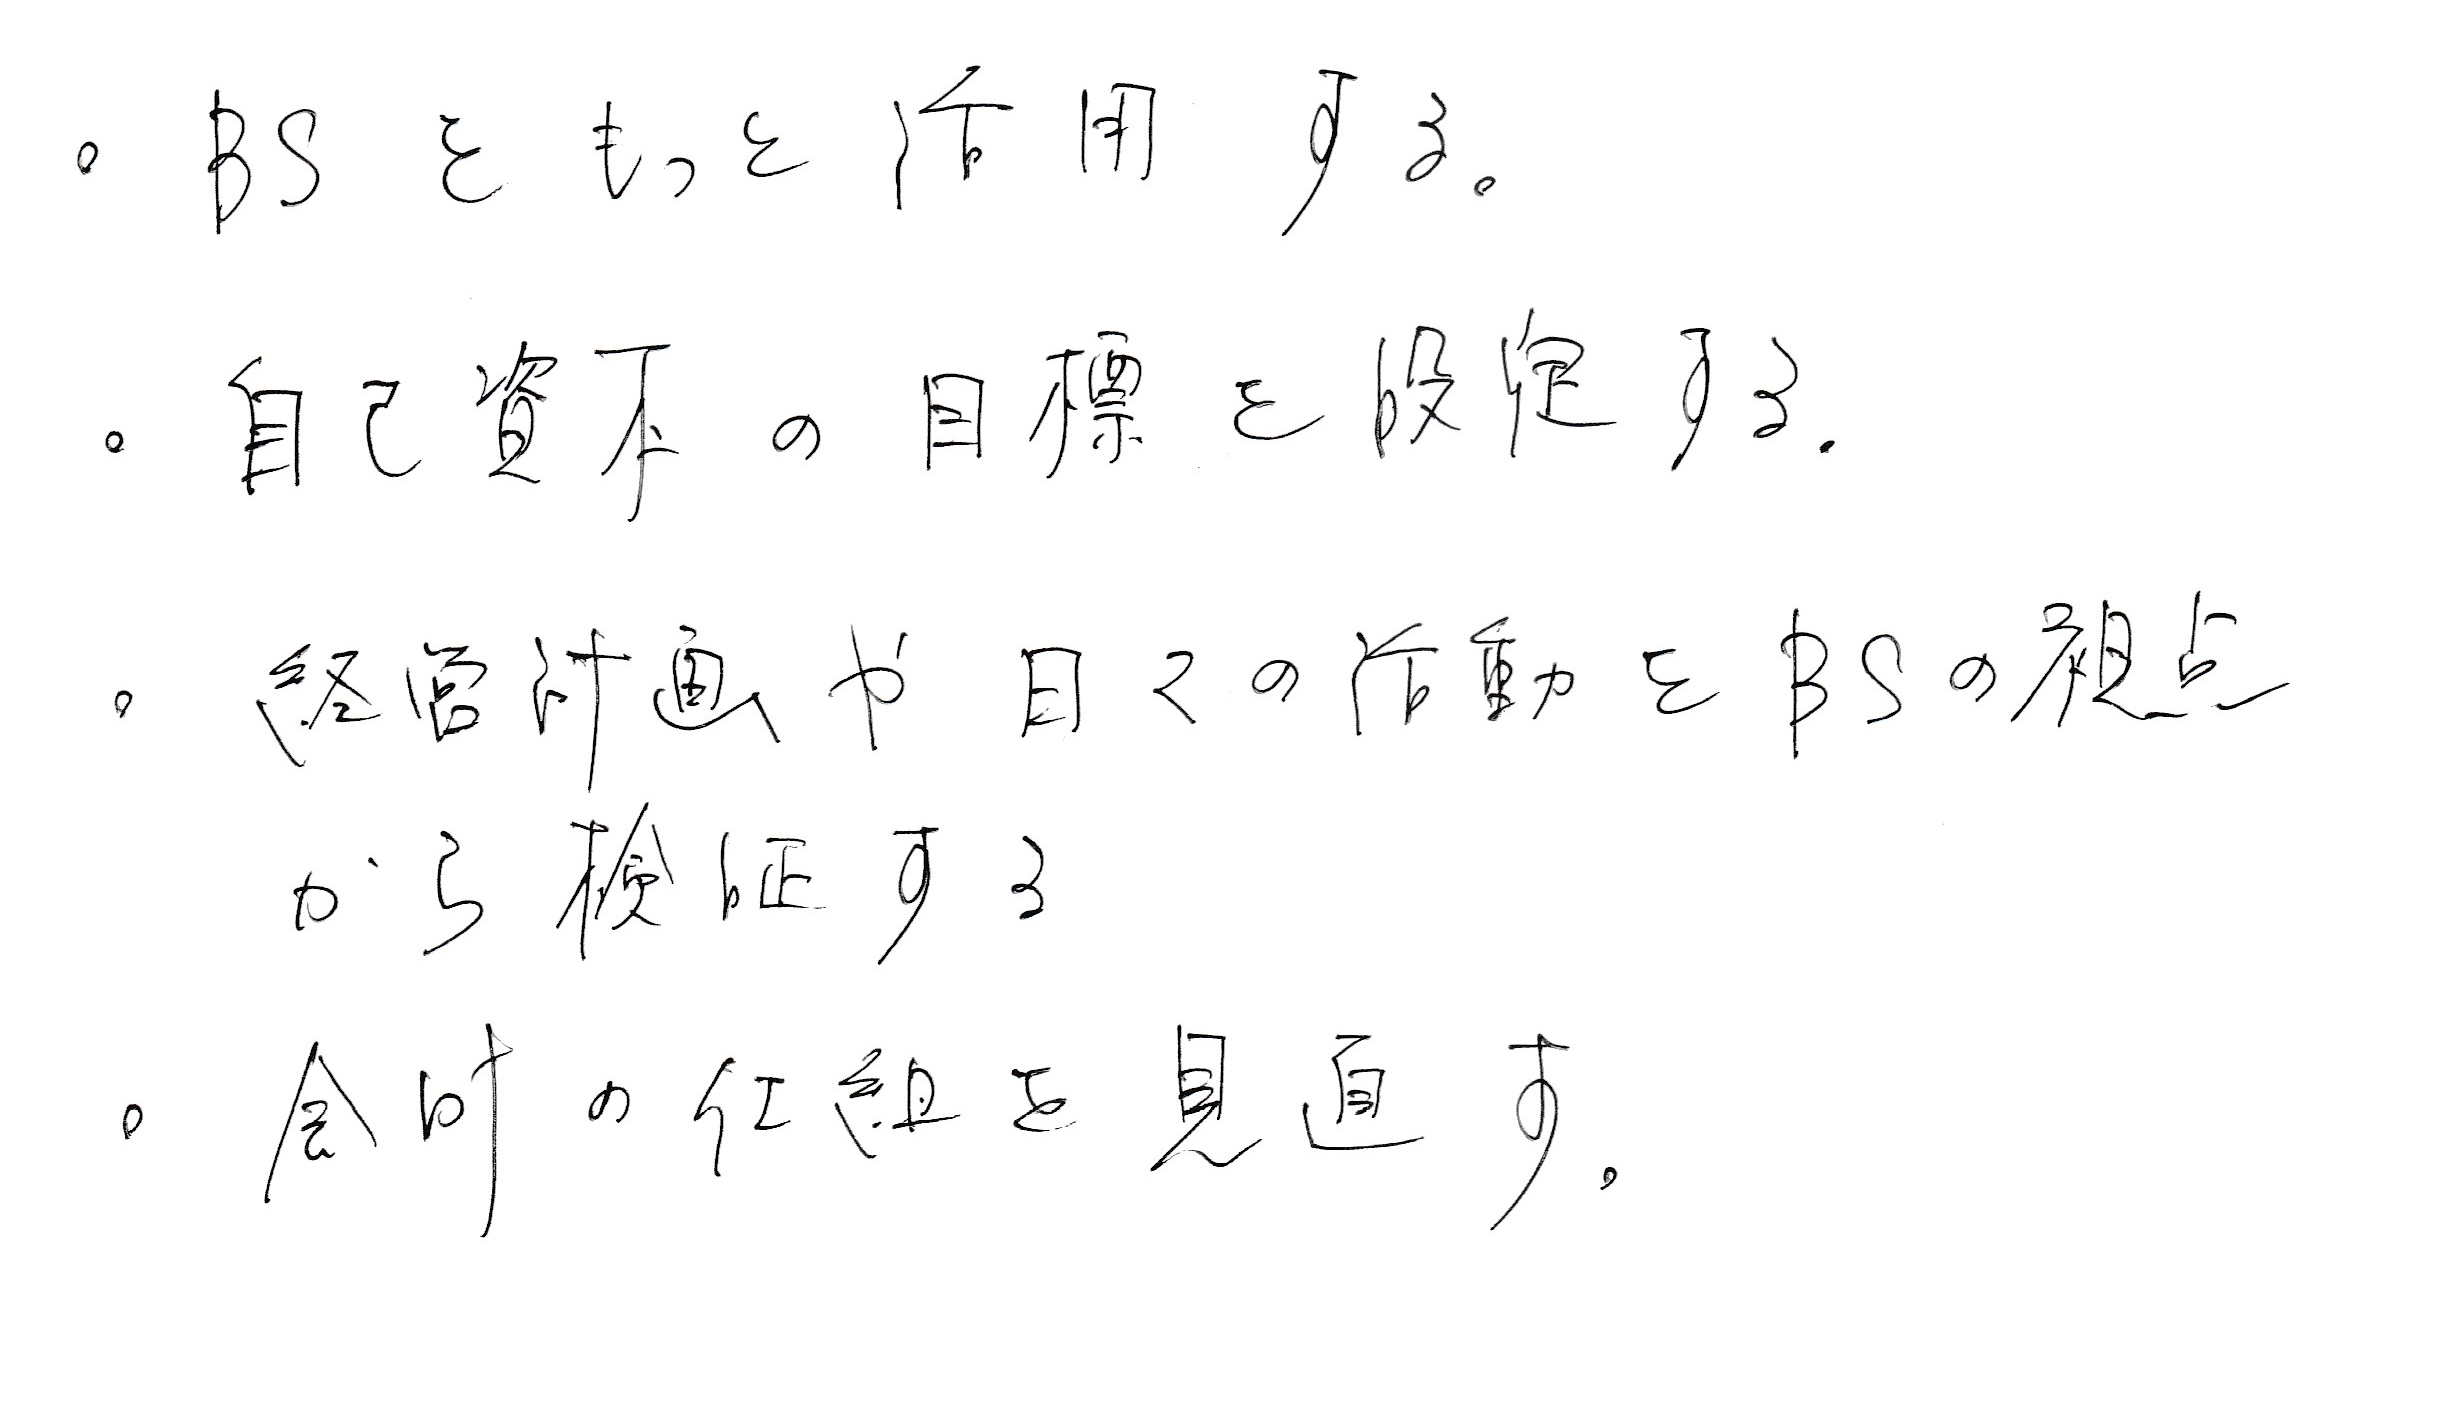 。BSをもっと活用する。
。自己資本の目標を設定する.
。経営計画や日々の活動をBSの視点
から検証する
。会計の仕組を見直す。